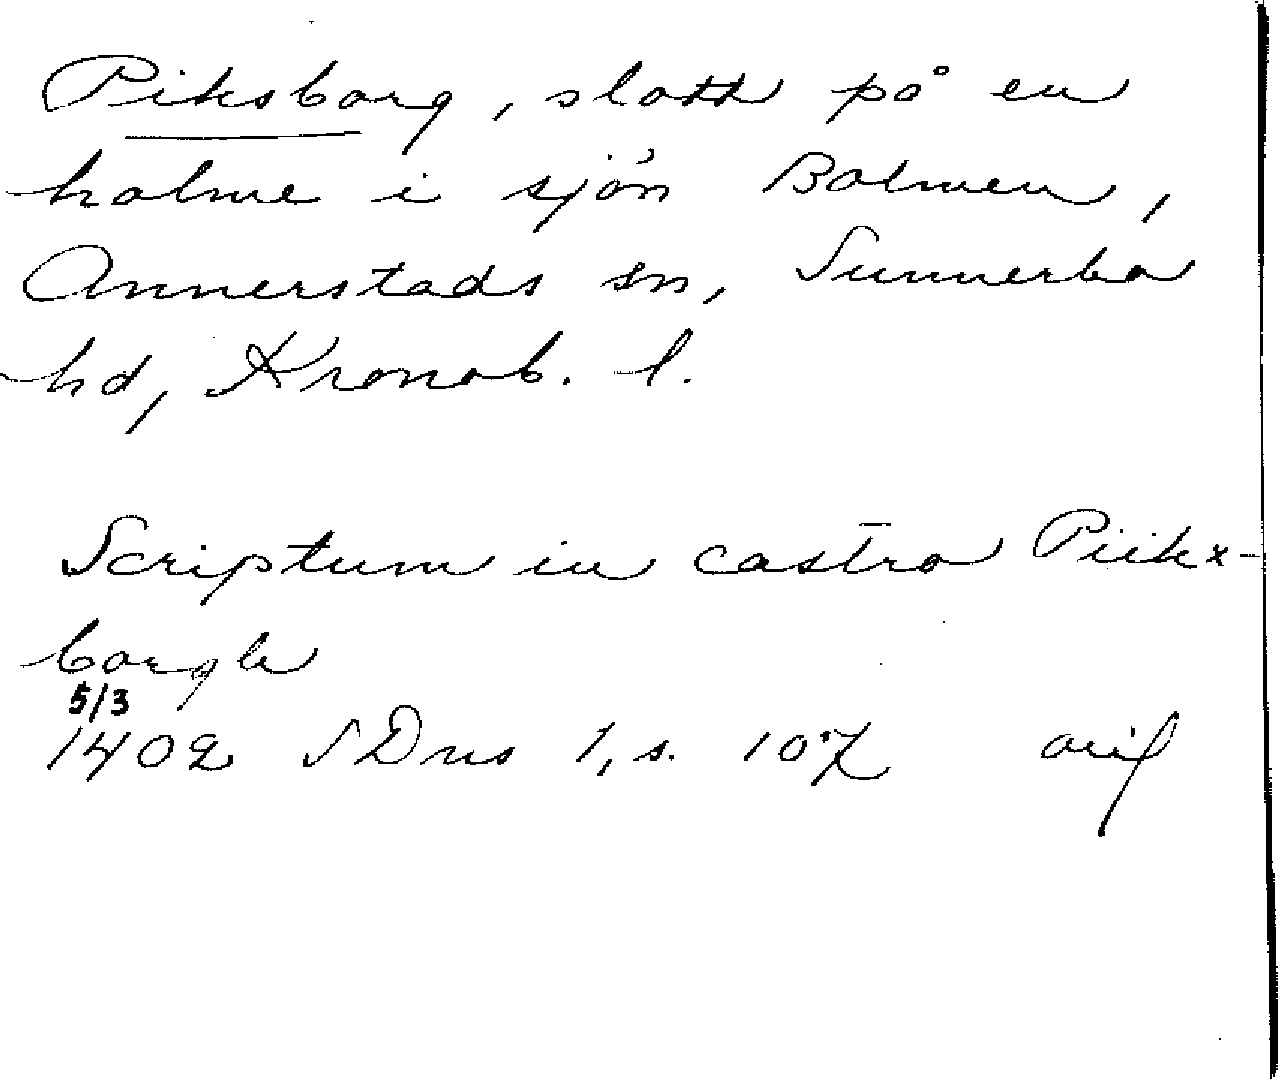 Piksborg, slott på en
holme i sjön Bolmen,
Annerstads sn, Sunnerbo
hd, Kronob. l.
Scriptum in castro Piikx-
borgh
5/3
1402 SDns 1, s. 107 orig